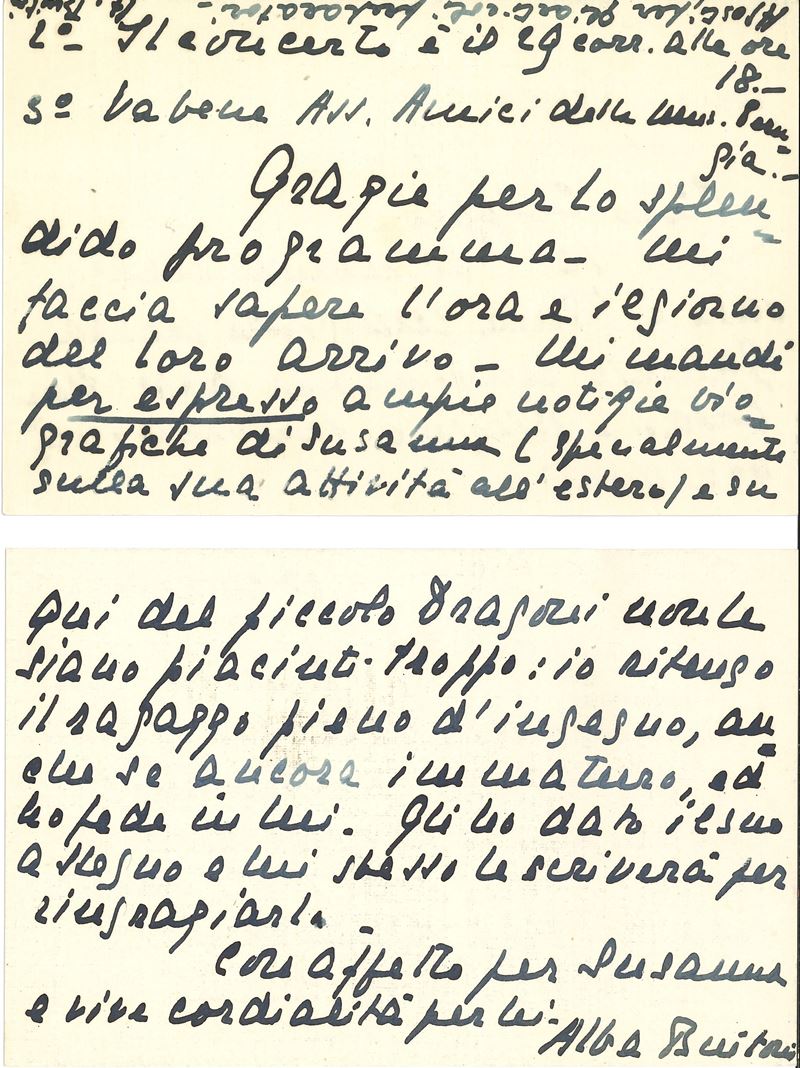 2º- Il concerto è il 29 corr. alle ore
18.-
3º Va bene Ass. Amici della Mus. Peru-
gia.-
Grazie per lo splen-
dido programma- Mi
faccia sapere l'ora e il giorno
del loro arrivo- Mi mandi
per espresso ampie notizie bio-
grafiche di Susanna (specialmente
sulla sua attività all'estero) e su
Qui del piccolo Dragoni non le
siano piaciuti troppo: io ritengo
il ragazzo pieno d'ingegno, an-
che se ancora immaturo, ed
ho fede in lui. Gli ho dato il suo
assegno e lui stesso le scriverà per
ringraziarla.
Con affetto per Susanna
e vive cordialità per lei.
Alba Buitoni